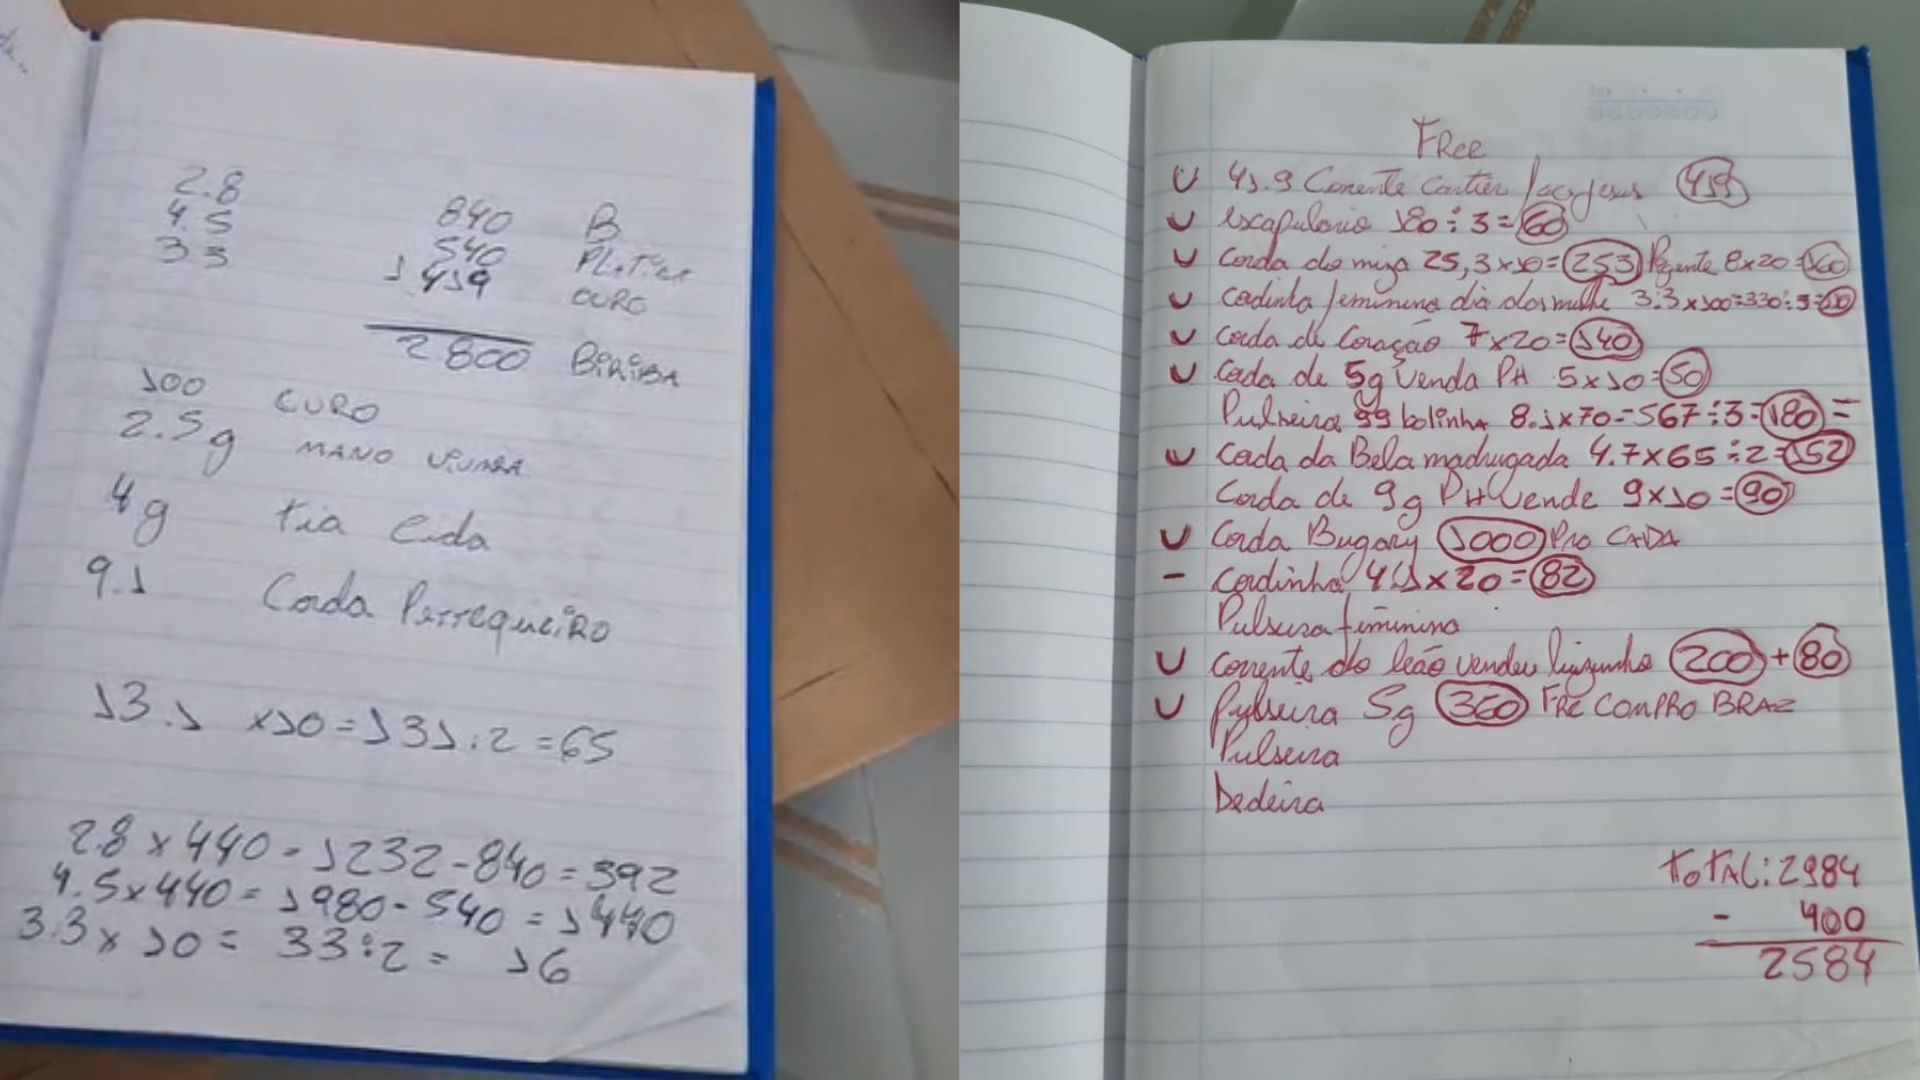 2.8
4.5
3.3
840 B
540 PLaTina
1.419 OURO
2800 BiRiBA
100 OURO
2.5g MANO ViVARA
4g tia Cida
9.1 Corda Perrequeiro
13.1 x10=131÷2=65
2.8 x 440 = 1232 - 840 = 392
4.5 x 440 = 1980 - 540 = 1440
3.3 x 10 = 33÷2 = 16
FRee
41.9 Corrente Cartier 419
escapulario 180÷3=60
Corda do 25,3x10=253 Pigente 8x20=160
Cordinha feminina dia 3.3x100=330÷3=110
Corda de Coração 7x20=140
Corda de 5g Venda PH 5x10=50
Pulseira 99 bolinha 8.1x70=567÷3=180 =
Corda da Bela madrugada 4.7x65÷2=152
Corda de 9g PH Vende 9x10=90
Corda Bugary 1000 PRO CADA
- Cordinha 4.1x20=82
Pulseira feminina
Corrente do leão vendeu 200+80
Pulseira 5g 360 FRE COMPRO BRAZ
Pulseira
Dedeira
ToTAL: 2984
- 400
2584